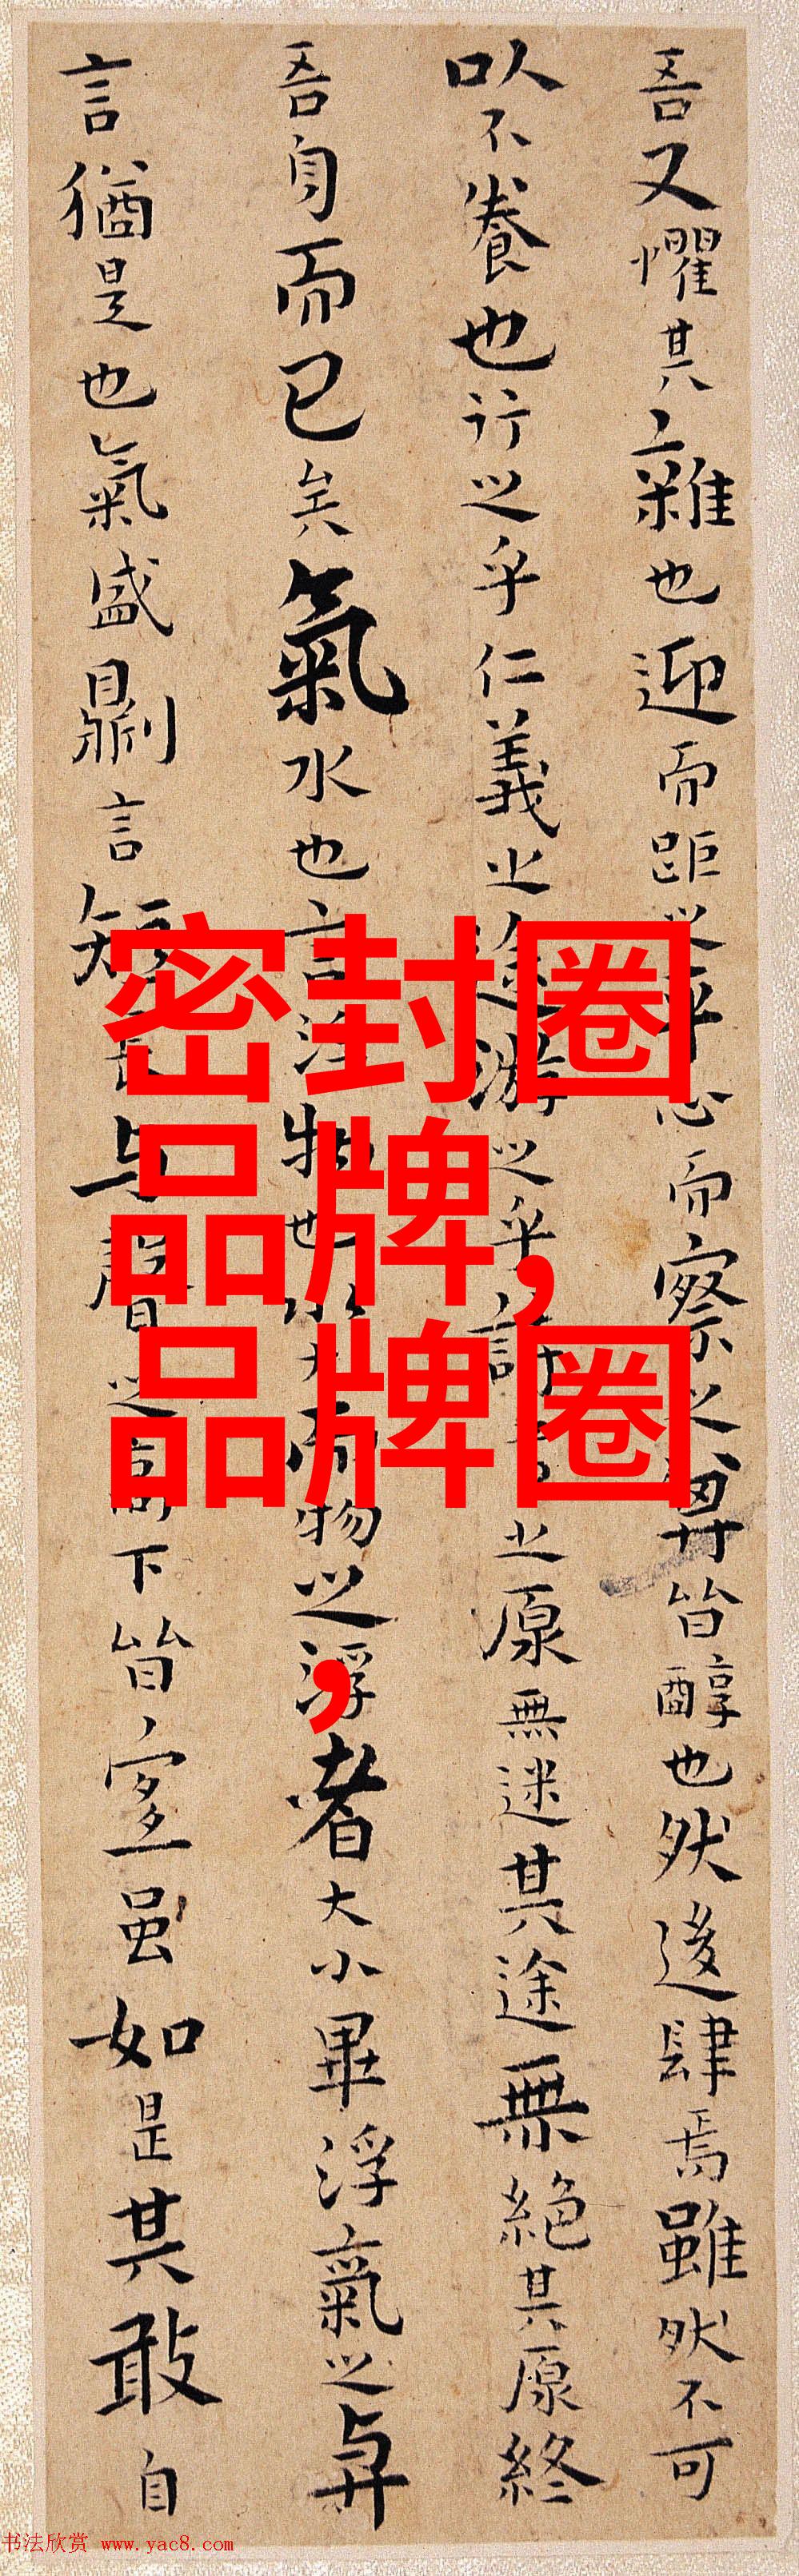 吾又懼其雜也迎而距之平心而察之其皆醇也然後肆焉雖然不可
以不養也行之乎仁義之途游之乎詩書之原無迷其途無絕其原終
吾身而已矣氣水也言浮物也水大而物之浮者大小畢浮氣之與
言猶是也氣盛則言短長与聲之高下皆宜虽如是其敢自
密封圈
品牌,
品牌圈
,
书法欣赏 www.yac8.com